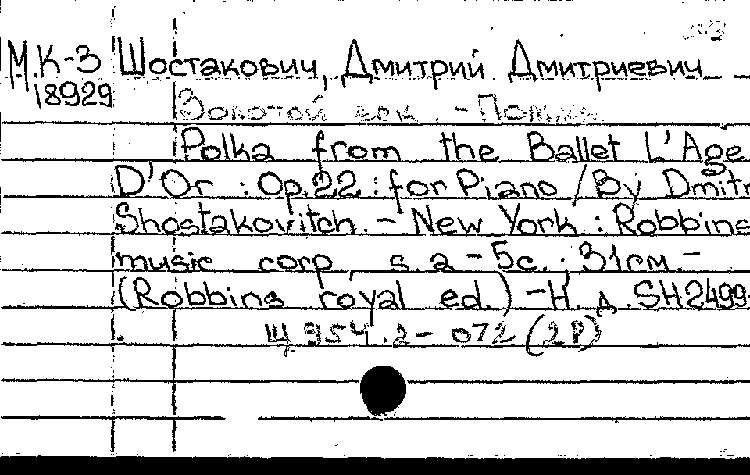 М.К-3 Шостакович, Дмитрий Дмитриевич
18929
Золотой век. - Полька.
Polka from the Ballet L'Age
D'Or : Op.22 : for Piano / By Dmitri
Shostakovitch. - New York : Robbins
music corp, s. a - 5с. ; 31см. -
(Robbins royal ed.) - Н. д. SH2499
Щ 954.2 - 072 (2Р)